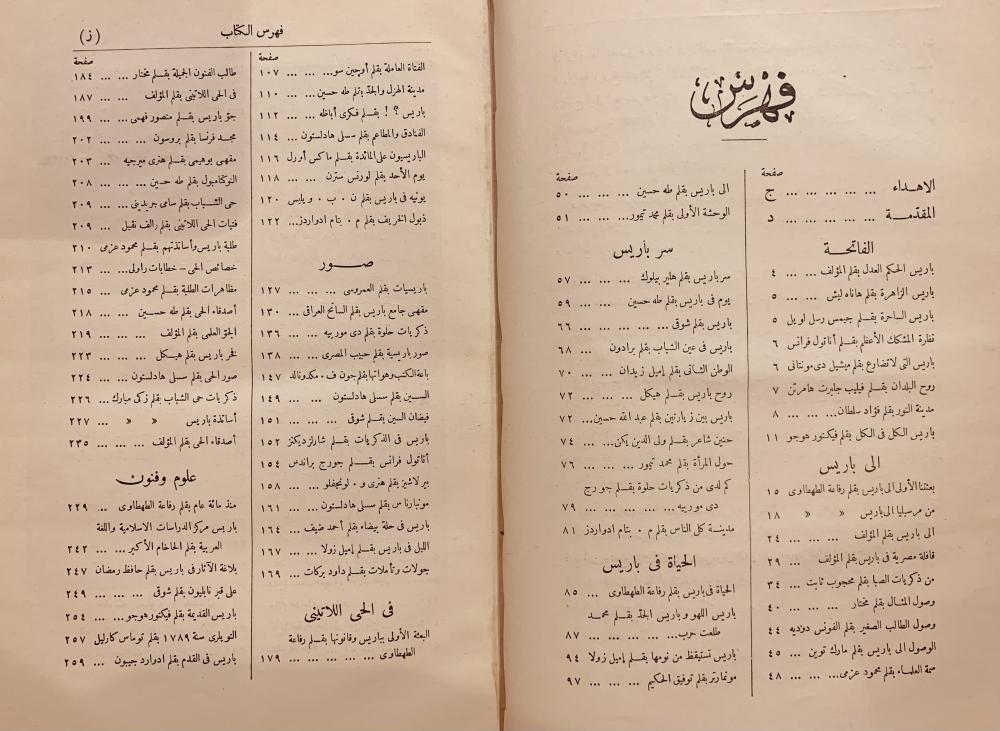 فهرس
صفحة
الاهداء ... ... ... ... ... ج
المقدّمة ... ... ... ... ... د
الفاتحة
باريس الحكم العدل بقلم المؤلف ... ... ٤
باريس الزاهرة بقلم هاناه لينش ... ... ٥
باريس الساحرة بقلم جيمس رسل لويل ٥
نظرة المشكك الأعظم بقلم أناتول فرانس ٦
باريس التى لا تضارع بقلم ميشيل دى مونتانى ٦
روح البلدان بقلم فيليب جلبرت هامرتن ٧
مدينة النور بقلم فؤاد سلطان ... ... ٨
باريس الكل فى الكل بقلم فيكتور هوجو ١١
الى باريس
بعثتنا الأولى الى باريس بقلم رفاعة الطهطاوى ١٥
من مرسيليا الى باريس » » ١٨
الى باريس بقلم المؤلف ... ... ... ٢٤
قافلة مصرية فى باريس بقلم المؤلف ... ٢٩
من ذكريات الصبا بقلم محجوب ثابت ... ٣٤
وصول المثال بقلم مختار ... ... ... ٤٠
وصول الطالب الصغير بقلم الفونس دوديه ٤٤
الوصول الى باريس بقلم مارك توين ... ٤٥
سمة العلماء بقلم محمود عزمى ... ... ٤٨
صفحة
الى باريس بقلم طه حسين ... ... ... ٥٠
الوحشة الأولى بقلم محمد تيمور ... ... ٥١
سر باريس
سر باريس بقلم هلير بيلوك ... ... ... ٥٧
يوم فى باريس بقلم طه حسين ... ... ٥٩
باريس بقلم شوقى ... ... ... ... ٦٦
باريس فى عين الشباب بقلم برادون ... ٦٨
الوطن الثانى بقلم إميل زيدان ... ... ٧٠
روح باريس بقلم هيكل ... ... ... ٧٢
باريس بين زيارتين بقلم عبد الله حسين ... ٧٢
حنين شاعر بقلم ولى الدين يكن ... ... ٧٤
حول المرأة بقلم محمد تيمور ... ... ... ٧٦
كم لدى من ذكريات حلوة بقلم جورج
دى موربيه ... ... ... ... ... ٧٩
مدينة كل الناس بقلم م . بتام ادواردز ٨١
الحياة فى باريس
الحياة فى باريس بقلم رفاعة الطهطاوى ... ٨٥
باريس اللهو وباريس الجد بقلم محمد
طلعت حرب ... ... ... ... ... ٨٧
باريس تستيقظ من نومها بقلم إميل زولا ٩٤
مونمارتر بقلم توفيق الحكيم ... ... ... ٩٧
فهرس الكتاب (ز)
صفحة
الفتاة العاملة بقلم أوجين سو ... ... ... ١٠٧
مدينة الهزل والجد بقلم طه حسين ... ... ١١٠
باريس ؟ ! بقلم فكرى أباظه ... ... ١١٢
الفنادق والمطاعم بقلم سسلى هادلستون ... ١١٤
الباريسيون على المائدة بقلم ماكس أورل ١١٦
يوم الأحد بقلم لورنس سترن ... ... ١١٨
يونيه فى باريس بقلم ن . ب . ويليس ١٢٠
ذبول الخريف بقلم م . بتام ادواردز ... ١٢٢
صور
باريسيات بقلم العمروسى ... ... ... ١٢٧
مقهى جامع باريس بقلم السائح العراقى ... ١٣٠
ذكريات حلوة بقلم دى موربيه ... ... ١٣٦
صور باريسية بقلم حبيب المصرى ... ... ١٣٨
باعة الكتب وهواتها بقلم جون ف . مكدونالد ١٤٧
السين بقلم سسلى هادلستون ... ... ١٤٩
فيضان السين بقلم شوقى ... ... ... ١٥١
باريس فى الذكريات بقلم شارلز ديكنز ١٥٢
أناتول فرانس بقلم جورج براندس ١٥٤
بير لاشيز بقلم هنرى و . لونجفلو ... ١٥٨
مونبارناس بقلم سسلى هادلستون ... ... ١٦١
باريس فى حلة بيضاء بقلم أحمد ضيف ... ١٦٤
الليل فى باريس بقلم إميل زولا ... ... ١٦٧
جولات وتأملات بقلم داود بركات ... ١٦٩
فى الحى اللاتينى
البعثة الأولى بباريس وقانونها بقلم رفاعة
الطهطاوى ... ... ... ... ... ١٧٩
صفحة
طالب الفنون الجميلة بقلم مختار ... ... ١٨٤
فى الحى اللاتينى بقلم المؤلف ... ... ١٨٧
جوّ باريس بقلم منصور فهمى ... ... ١٩٩
مجد فرنسا بقلم بروسون ... ... ... ٢٠٢
مقهى بوهيمى بقلم هنرى ميرجيه ... ٢٠٣
النوكتامبول بقلم طه حسين ... ... ... ٢٠٨
حى الشباب بقلم سامى جريدينى ... ... ٢٠٩
فتيات الحى اللاتينى بقلم رالف نقيل ... ٢٠٩
طلبة باريس وأساتذتهم بقلم محمود عزمى ٢١٠
خصائص الحى – خطابات راول ... ... ٢١٣
مظاهرات الطلبة بقلم محمود عزمى ... ٢١٥
أصدقاء الحى بقلم طه حسين ... ... ٢١٨
الجوّ العلمى بقلم المؤلف ... ... ... ٢١٩
نفر باريس بقلم هيكل ... ... ... ٢٢٣
صور الحى بقلم سسلى هادلستون ... ... ٢٢٤
ذكريات حى الشباب بقلم زكى مبارك ... ٢٢٦
أساتذة باريس » » ... ٢٢٧
أصدقاء الحى بقلم المؤلف ... ... ... ٢٣٥
علوم وفنون
منذ مائة عام بقلم رفاعة الطهطاوى ... ٢٣٩
باريس مركز الدراسات الاسلامية واللغة
العربية بقلم الحاخام الأكبر ... ... ٢٤٢
بلاغة الآثار فى باريس بقلم حافظ رمضان ٢٤٧
على قبر نابليون بقلم شوقى ... ... ... ٢٤٩
باريس القديمة بقلم فيكتور هوجو ... ... ٢٥٤
التويلرى سنة ١٧٨٩ بقلم توماس كارليل ٢٥٧
باريس فى القدم بقلم ادوارد جيبون ... ٢٥٩